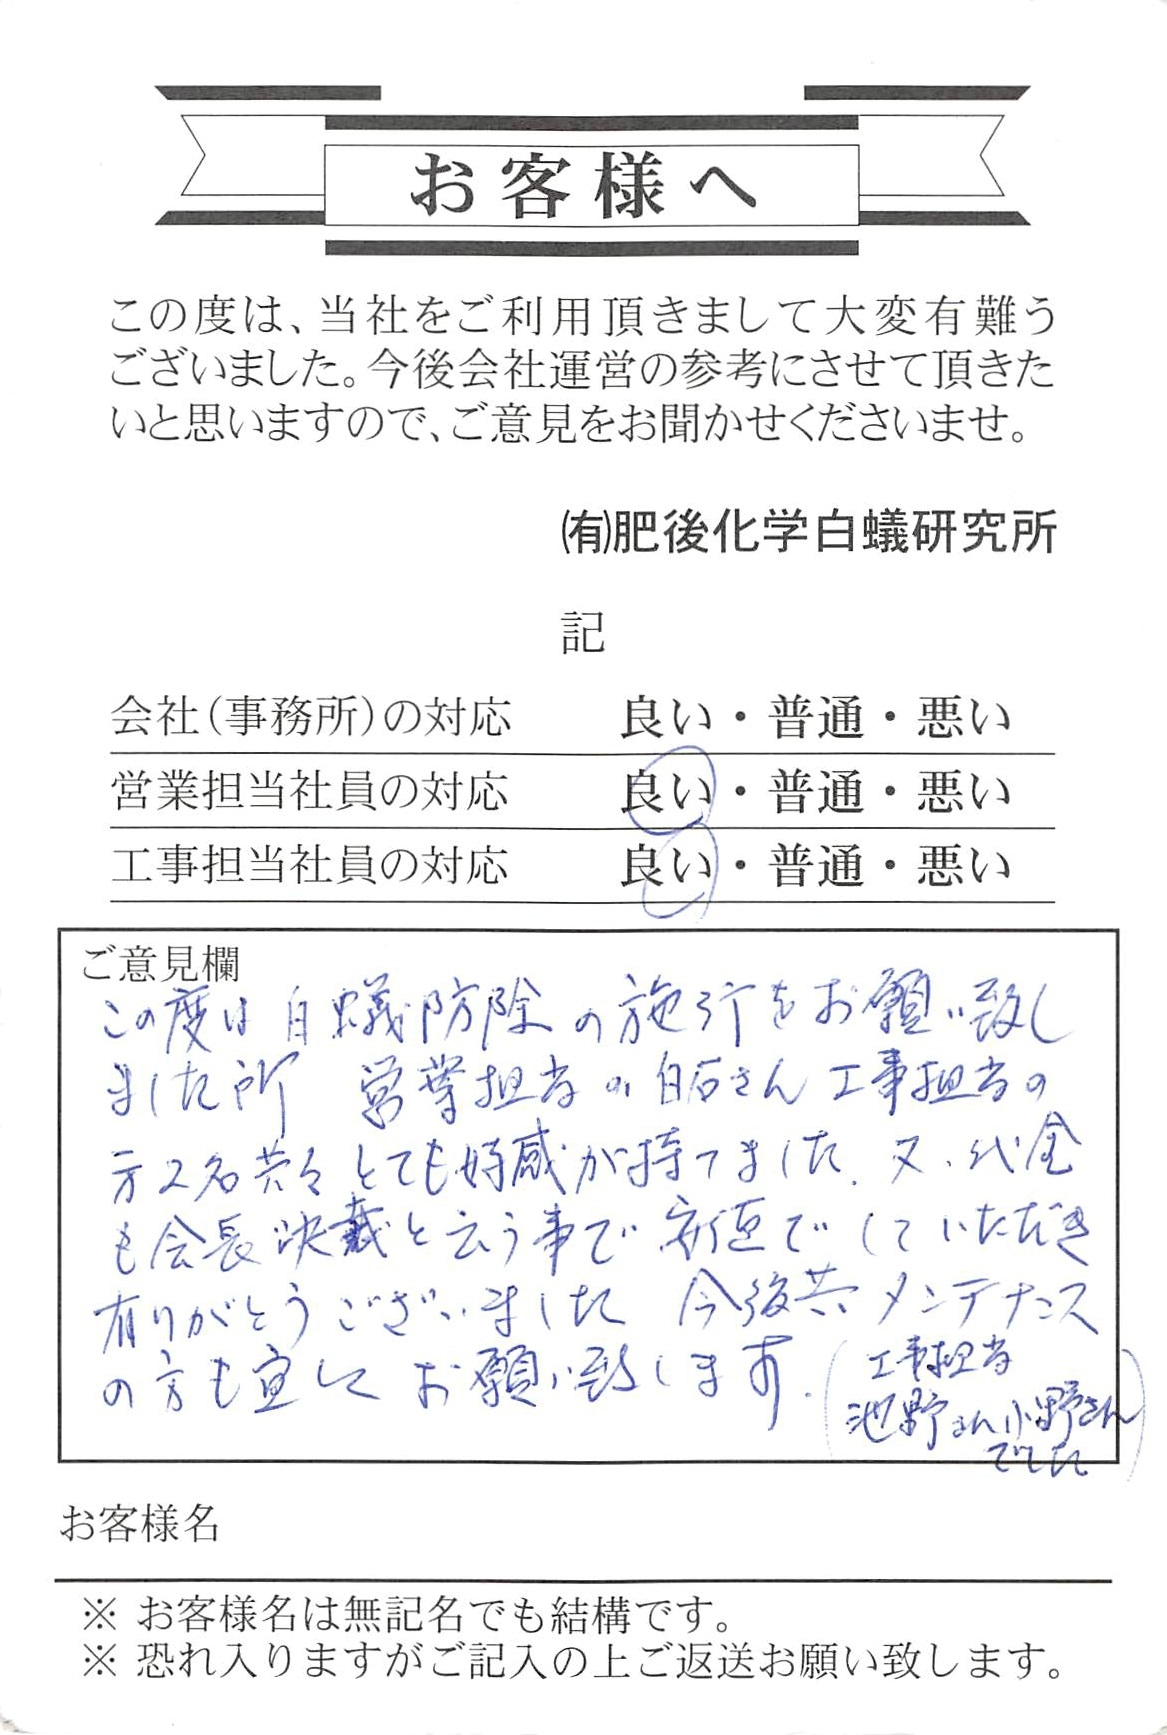 お客様へ
この度は、当社をご利用頂きまして大変有難う
ございました。今後会社運営の参考にさせて頂きた
いと思いますので、ご意見をお聞かせくださいませ。
㈲肥後化学白蟻研究所
記
会社(事務所)の対応 良い・普通・悪い
営業担当社員の対応 良い・普通・悪い
工事担当社員の対応 良い・普通・悪い
ご意見欄
この度は白蟻防除の施行をお願い致し
ました所 営業担当の白石さん工事担当の
方2名共々とても好感が持てました。又、代金
も会長決裁と云う事で でしていただき
有りがとうございました 今後共 メンテナンス
の方も宜しくお願い致します。
(工事担当
池野さん小野さん
でした)
お客様名
※ お客様名は無記名でも結構です。
※ 恐れ入りますがご記入の上ご返送お願い致します。